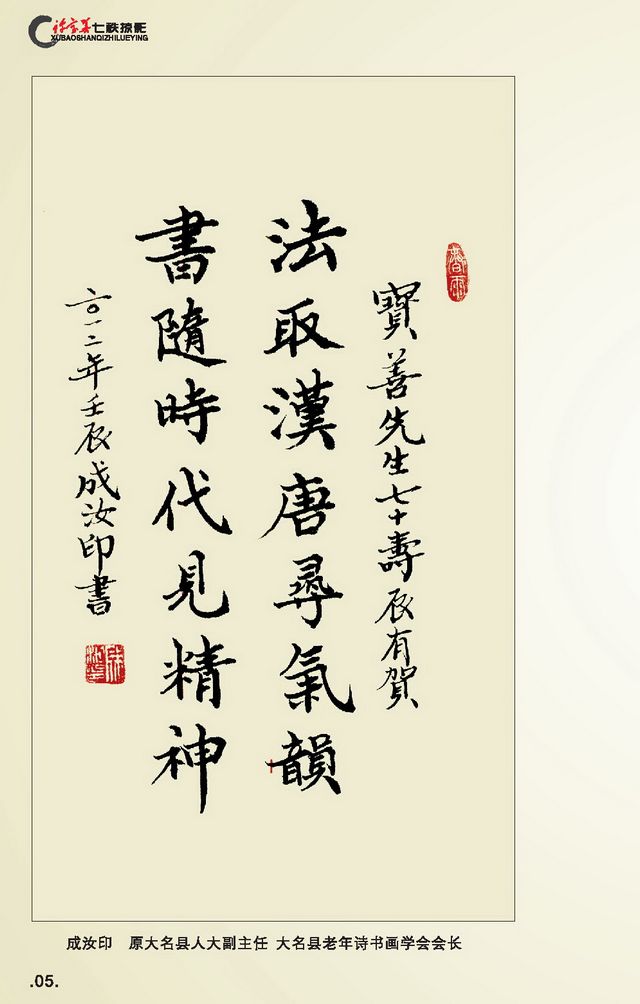 许宝善七秩掠影
XUBAOSHANQIZHILUEYING
寶善先生七十壽辰有賀
法取漢唐尋氣韻
書隨時代見精神
二〇一二年壬辰成汝印書
成汝印 原大名县人大副主任 大名县老年诗书画学会会长
.05.